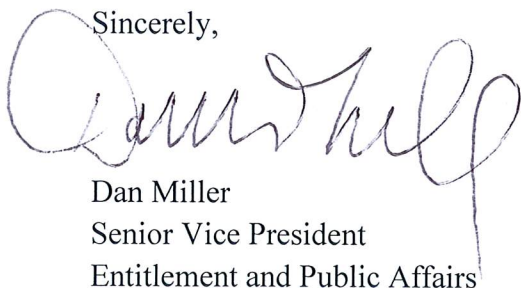 Sincerely,
Dan Miller
Senior Vice President
Entitlement and Public Affairs